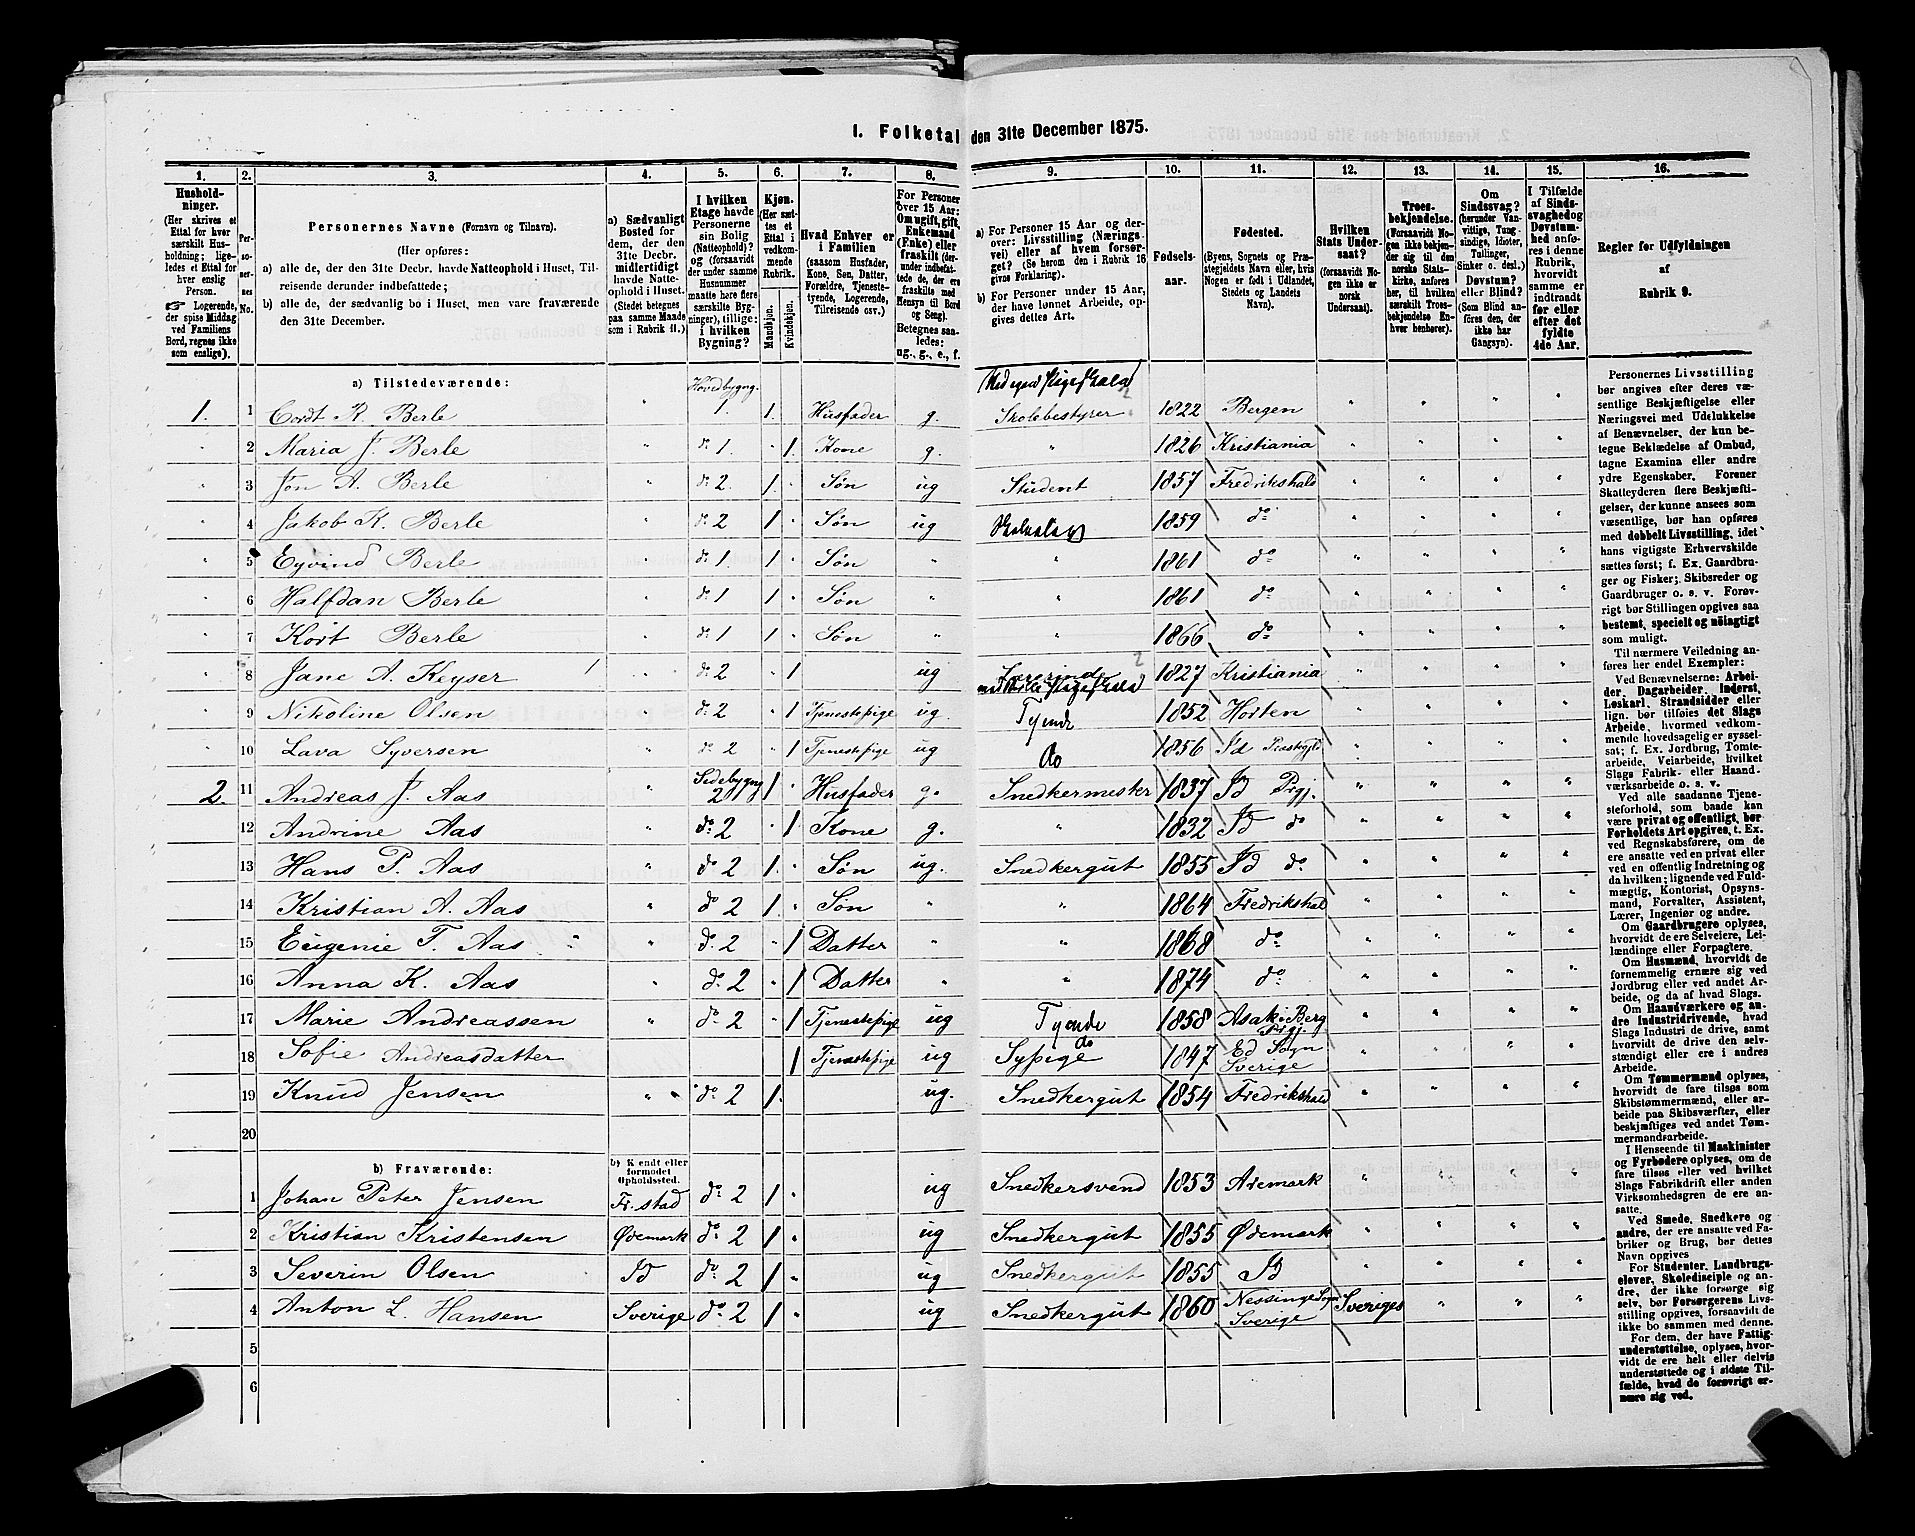 1. Folketal den 31te December 1875.
1. 2. 3. 4. 5. 6. 7. 8. 9. 10. 11. 12. 13. 14. 15. 16.
Husholdninger.
(Her skrives et Ettal for hver særskilt Husholdning; ligeledes et Ettal for hver enslig Person.
Logerende, der spise Middag ved Familiens Bord, regnes ikke som enslige).
Personernes No.
Personernes Navne (Fornavn og Tilnavn).
(Her opføres:
a) alle de, der den 31te Decbr. havde Natteophold i Huset, Tilreisende derunder indbefattede;
b) alle de, der sædvanlig bo i Huset, men vare fraværende den 31te December.
a) Sædvanligt Bosted for dem, der den 31te Decbr. midlertidigt havde Natteophold i Huset.
(Stedet betegnes paa samme Maade som i Rubrik 11.)
I hvilken Etage havde Personerne sin Bolig (Natteophold)? og (forsaavidt der under samme Husnummer maatte høre flere særskilte Bygninger), tillige: I hvilken Bygning?
Kjøn.
(Her sættes et Ettal i vedkommende Rubrik.
Mandkjøn.
Kvindekjøn.
Hvad Enhver er i Familien
(saasom Husfader, Kone, Søn, Datter, Forældre, Tjenestetyende, Logerende, Tilreisende osv.)
For Personer over 15 Aar: Om ugift, gift, Enkemand (Enke) eller fraskilt (derunder indbefattede de, der ere fraskilte med Hensyn til Bord og Seng).
Betegnes saaledes: ug., g., e., f.
a) For Personer 15 Aar og derover: Livsstilling (Næringsvei) eller af hvem forsørget? (Se herom den i Rubrik 16 givne Forklaring).
b) For Personer under 15 Aar, der have lønnet Arbeide, opgives dettes Art.
Fødselsaar.
Fødested.
(Byens, Sognets og Præstegjeldets Navn eller, hvis Nogen er født i Udlandet, Stedets og Landets Navn).
Hvilken Stats Undersaat?
(forsaavidt Nogen ikke er norsk Undersaat).
Troesbekjendelse.
(Forsaavidt Nogen ikke bekjender sig til den norske Statskirke, anføres her, til hvilket særskilt Troesbekjendelse Enhver benhører).
Om Sindssvag? (herunder Vanvittige, Tungsindige, Idioter, Tullinger, Sinker o. desl.) Døvstum? eller Blind?
(Som Blind anføres den, der ikke har Gangsyn).
I Tilfælde af Sindssvaghed og Døvstumhed anføres i denne Rubrik, hvorvidt samme er indtraadt før eller efter det fyldte 4de Aar.
Regler for Udfyldningen af Rubrik 9.
a) Tilstedeværende:
Med egen Pigeskole
1. 1 Cordt R. Berle " Hovedbygng. 1. 1. Husfader g. Skolebestyrer 1822 Bergen
2 Maria J. Berle " do 1. 1. Kone g. " 1826 Kristiania
3 Jon A. Berle " do 2. 1. Søn ug Student 1857 Fredrikshald
4 Jakob K. Berle " do 2 1 Søn ug Skoleelev 1859 do
5 Eyvind Berle " do 1 1 Søn " " 1861 do
6 Halfdan Berle " do 1 1 Søn " " 1861 do
7 Kort Berle " do 1 1 Søn " " 1866 do
8 Jane A. Keyser " do 2 1 ug Lærerinde 1827 Kristiania
9 Nikoline Olsen " do 2 1 Tjenestepige ug. Tyende 1852 Horten
10 Lava Syversen " do 2 1 Tjenestepige ug do 1856 Id Prestegjld
2. 11 Andreas J. Aas " Sidebygng 2 1 Husfader g. Snedkermester 1837 Id Prgj.
12 Andrine Aas " do 2 1 Kone g. " 1832 Id do
13 Hans P. Aas " do 2 1 Søn ug. Snedkergut 1855 Id do
14 Kristian A. Aas " do 2 1. Søn " " 1864 Fredrikshal
15 Eugenie T. Aas " do 2 1 Datter " " 1868 do
16 Anna K. Aas " do 2 1 Datter " " 1874 do
17 Marie Andreassen " do 2 1 Tjenestepige ug Tyende 1858 Asak i Berg Prgj.
18 Sofie Andreasdatter 1 Tjenestepige ug Sypige do 1847 Ed Sogn Sverige
19 Knud Jensen " do 2 1. ug. Snedkergut 1854 Fredrikshald
20
b) Fraværende:
b) Kendt eller formodet Opholdssted.
1 Johan Peter Jensen Fr.stad do 2 1 ug Snedkersvend 1853 Aremark
2 Kristian Kristensen Ødemark do 2 1 ug Snedkergut 1855 Ødemark
3 Severin Olsen Id do 2 1 ug Snedkergut 1855 Id
4 Anton L. Hansen Sverige do 2 1 ug Snedkergut 1860 Nessinge Sogn Sverige Sveriges
5
6
Personernes Livsstilling bør angives efter deres væsentlige Beskjæftigelse eller Næringsvei med Udelukkelse af Benævnelser, der kun betegne Beklædelse af Ombud, tagne Examina eller andre ydre Egenskaber. Forener Skatteyderen flere Beskjæftigelser, der kunne ansees som væsentlige, bør han opføres med dobbelt Livsstilling, idet hans vigtigste Erhvervskilde sættes først; f. Ex. Gaardbruger og Fisker; Skibsreder og Gaardbruger o. s. v. Forøvrigt bør Stillingen opgives saa bestemt, specielt og nöiagtigt som muligt.
Til nærmere Veiledning anføres her endel Exempler:
Ved Benævnelserne: Arbeider, Dagarbeider, Inderst, Løskarl, Strandsidder eller lign. bør tilføies det Slags Arbeide, hvormed vedkommende hovedsagelig er sysselsat; f. Ex. Jordbrug, Tomtearbeide, Veiarbeide, hvilket Slags Fabrik- eller Haandværksarbeide o. s. v.
Ved alle saadanne Tjenesteforhold, som baade kan være privat og offentligt, bør Forholdets Art opgives, t. Ex. ved Regnskabsførere, om de ere ansatte ved en privat eller ved en offentlig Indretning og da hvilken; lignende ved Fuldmægtig, Kontorist, Opsynsmand, Forvalter, Assistent, Lærer, Ingeniør og andre.
Om Gaardbrugere oplyses, hvorvidt de ere Selveiere, Leilændinge eller Forpagtere.
Om Husmænd, hvorvidt de fornemmelig ernære sig ved Jordbrug eller ved andet Arbeide, og da af hvad Slags.
Om Haandværkere og andre Industridrivende, hvad Slags Industri de drive, samt hvorvidt de drive den selvstændigt eller ere i andres Arbeide.
Om Tømmermænd oplyses, hvorvidt de fare tilsøs som Skibstømmermænd, eller arbeide paa Skibsværfter, eller beskjæftiges ved andet Tømmermandsarbeide.
I Henseende til Maskinister og Fyrbødere oplyses, om de fare tilsøs eller ved hvilket Slags Fabrikdrift eller anden Virksomhedsgren de ere ansatte.
Ved Smede, Snedkere og andre, der ere ansatte ved Fabriker og Brug, bør dettes Navn opgives
For Studenter, Landbrugselever, Skoledisciple og andre, der ikke forsørge sig selv, bør Forsørgerens Livsstilling opgives, forsaavidt de ikke bo sammen med denne.
For dem, der have Fattigunderstøttelse, oplyses, hvorvidt de ere helt eller delvis understøttede og i sidste Tilfælde, hvad de forøvrigt ernære sig ved.